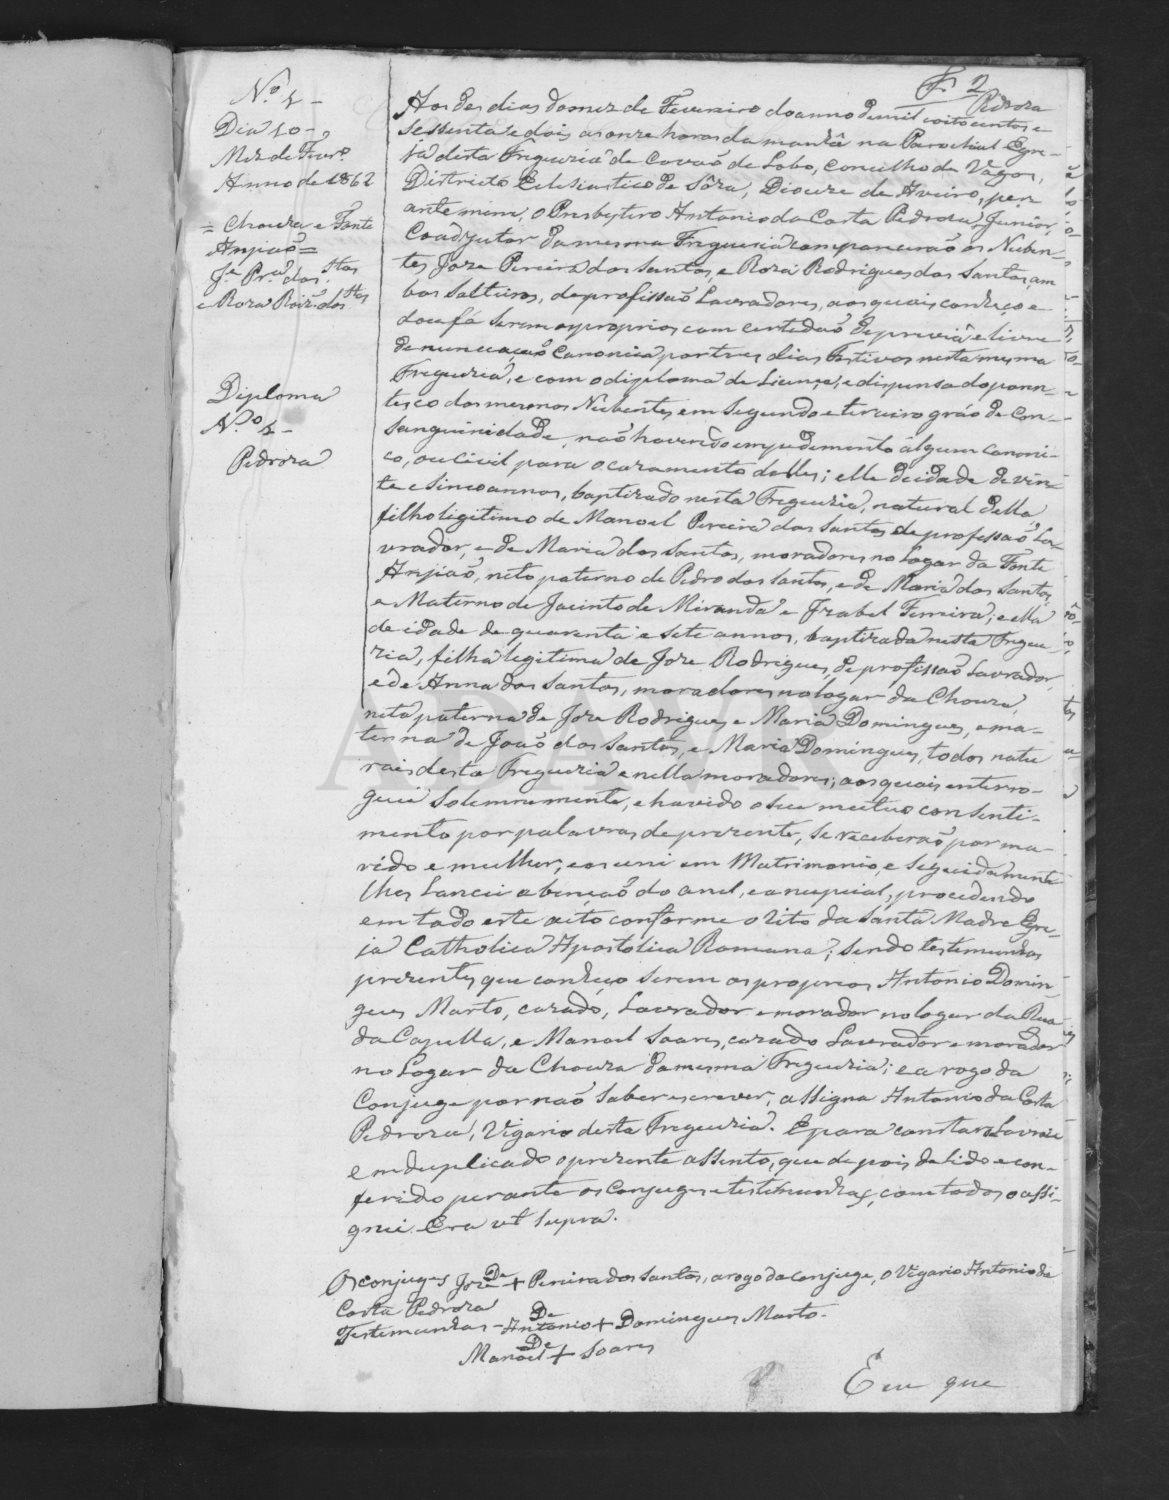 F 2
Pedroza
N.º 1 -
Dia 10 -
Mez de Fevr.º
Anno de 1862
= Chouza e Fonte
Anjiaõ =
J.e Pr.a dos S.tos
e Roza Roiz dos S.tos
Diploma
N.º 1 -
Pedroza
Aos des dias do mez de Fevereiro do anno de mil e oito centos e
sessenta e dois, as onze horas da manhã na Parochial Egre-
ja desta Freguezia de Covaõ de Lobo, Concelho de Vagos,
Districto Eclesiastico de Sôza, Dioceze de Aveiro, per
ante mim, o Presbytero Antonio da Costa Pedroza Junior,
Coadjutor da mesma Freguezia compareceraõ os Nuben-
tes Joze Pereira dos Santos, e Roza Rodrigues dos Santos, am
bos solteiros, de profissaõ Lavradores, aos quais conheço e
dou fé serem os proprios, com certidaõ de previa e livre
denunciaçaõ Canonica por tres dias festivos nesta mesma
Freguezia, e com o diploma de Licença, e dispensa do paren-
tesco dos mesmos Nubentes em segundo e terceiro gráo de Con-
sanguinidade, naõ havendo empedemento algum canoni-
co, ou civil para o cazamento delles; elle de idade de vin
te e sinco annos, baptizado nesta Freguezia, natural della,
filho ligitimo de Manoel Pereira dos Santos, de profissaõ La-
vrador, e de Maria dos Santos, moradores no Logar da Fonte
Anjiaõ, neto paterno de Pedro dos Santos, e de Maria dos Santos,
e Materno de Jacinto de Miranda e Izabel Ferreira; e ella
de idade de quarenta e sete annos, baptizada nesta Fregue-
zia, filha legitima de Joze Rodrigues, de profissaõ Lavrador,
e de Anna dos Santos, moradores no logar da Chouza,
neta paterna de Joze Rodrigues e Maria Domingues, e ma-
terna de Joaõ dos Santos, e Maria Domingues, todos natu
rais desta Freguezia e nella moradores; aos quais enterro-
guei solemnemente, e havido o seu mutuo consenti-
mento por palavras de prezente, se receberaõ por ma-
rido e mulher, e os uni em Matrimonio, e seguidamente
lhes Lancei a bençaõ do anel, e a nupcial, procedendo
em todo este acto conforme o rito da Santa Madre Egre-
ja Catholica Apostolica Romana; sendo testemunhas
prezentes, que conheço serem os proprios Antonio Domin-
gues Marto, cazado, Lavrador e morador no logar da Rua
da Capella, e Manoel Soares, cazado Lavrador e morador
no Logar da Chouza da mesma Freguezia; e a rogo da
Conjuge por naõ saber escrever, assigna Antonio da Costa
Pedroza, Vigario desta Freguezia. E para constar Lavrei
em duplicado o prezente assento, que depois de lido e con-
ferido perante os Conjuges e testemunhas, com todos o assi-
gnei. Era ut supra.
Os conjuges Joze De + Pereira dos Santos, a rogo da conjuge, o Vigario Antonio da
Costa Pedroza
Testemunhas - Antonio De + Domingues Marto -
Manoel De + Soares
E eu que